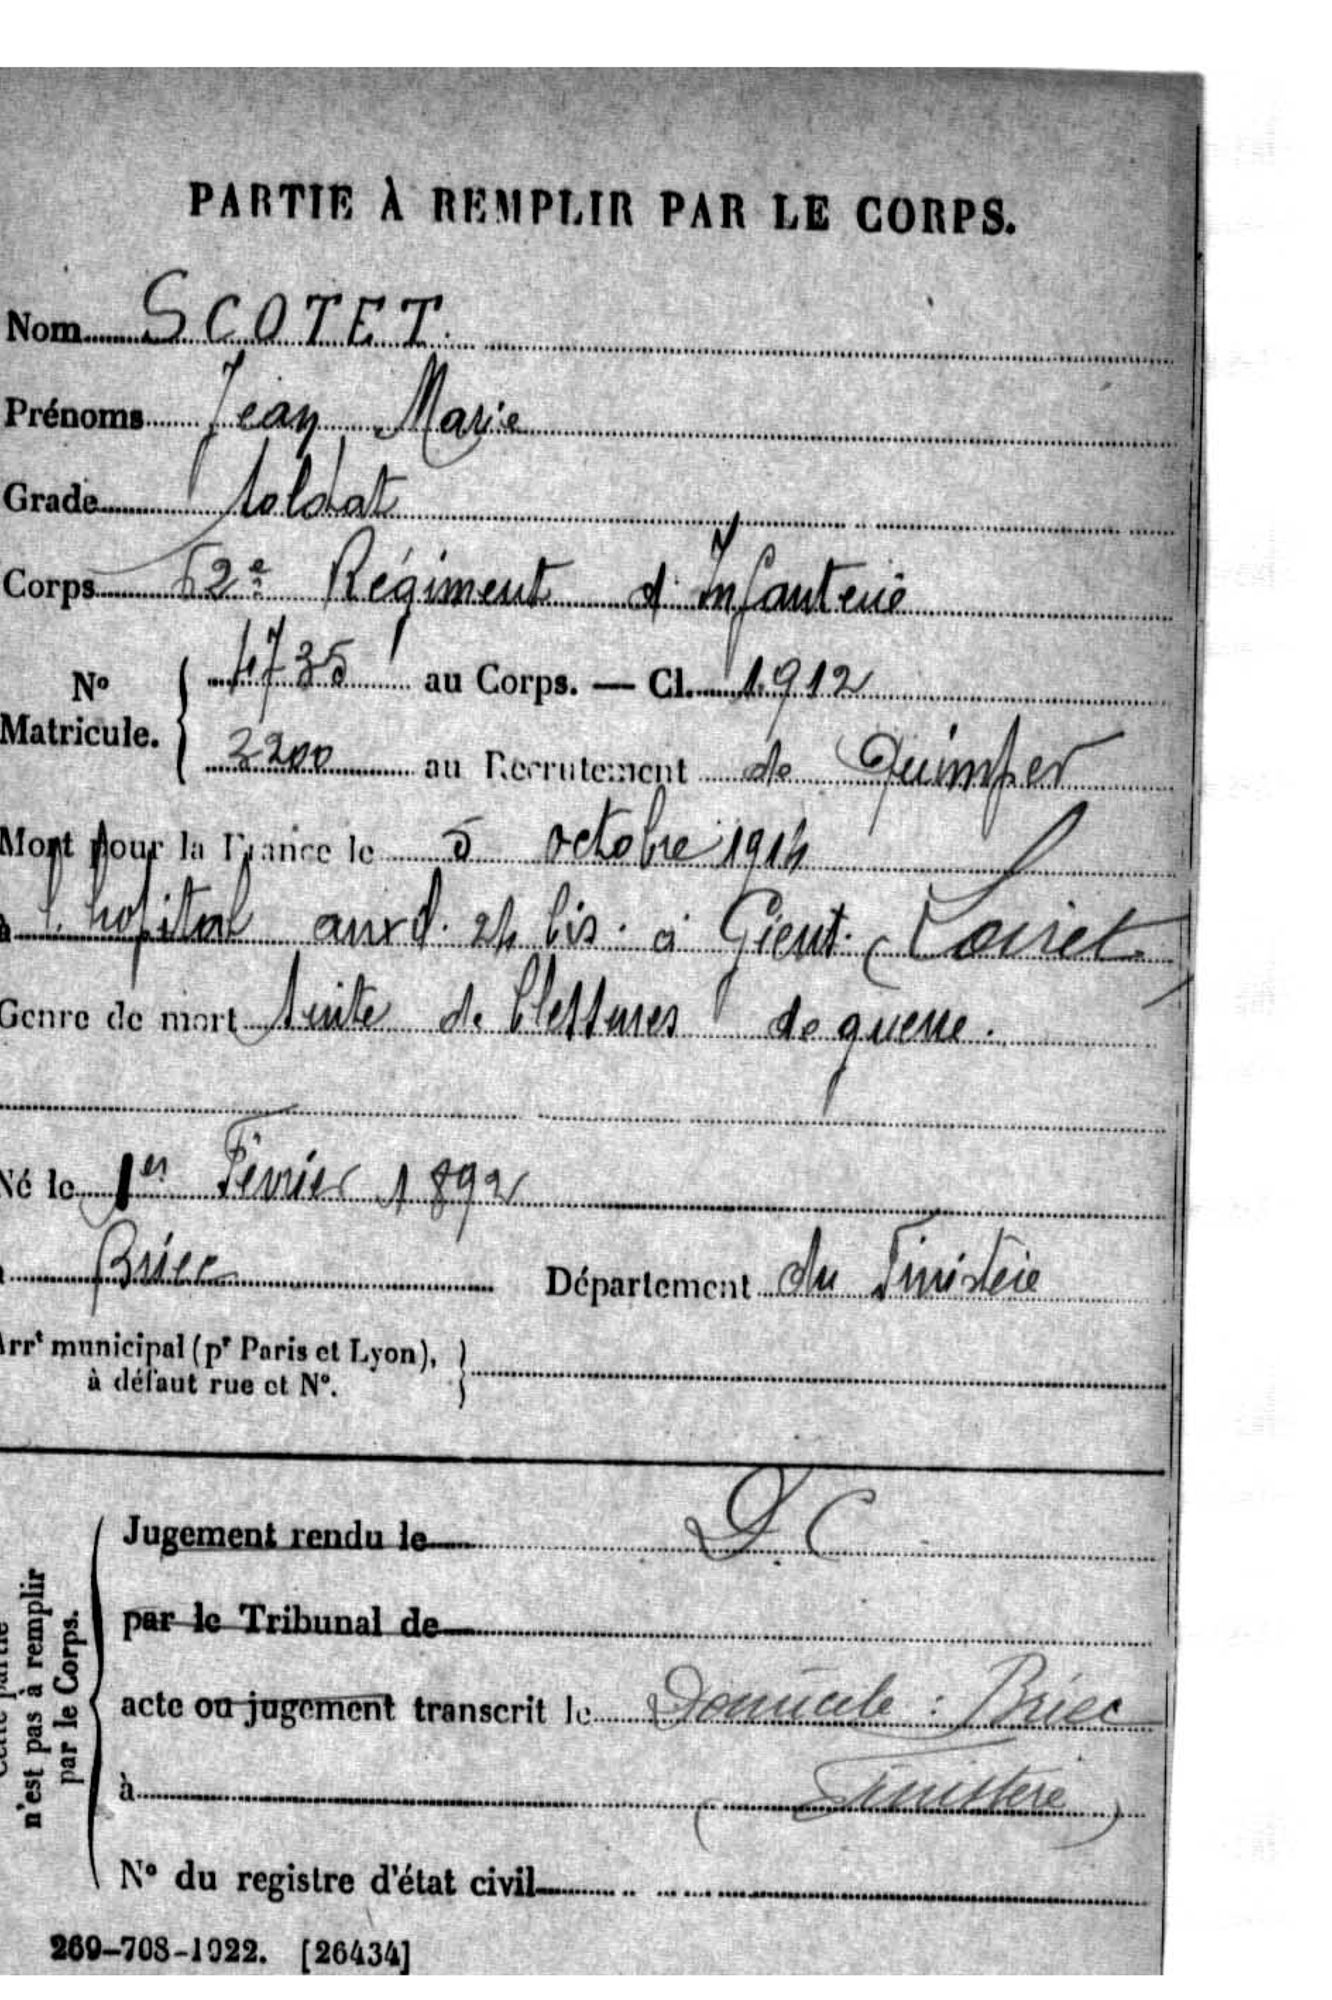 PARTIE À REMPLIR PAR LE CORPS.
Nom SCOTET.
Prénoms Jean Marie
Grade soldat
Corps 62e Régiment d'Infanterie
No Matricule. { 4735 au Corps. — Cl. 1912
3200 au Recrutement de Quimper
Mort pour la France le 5 octobre 1914
à l'hopital auxil. 24 bis. à Gient. (Loiret)
Genre de mort suite de blessures de guerre.
Né le 1er Février 1892
à Briec Département du Finistère
Arrt municipal (pr Paris et Lyon), }
à défaut rue et No.
Cette partie
n'est pas à remplir
par le Corps.
Jugement rendu le D. C
par le Tribunal de
acte ou jugement transcrit le Domicile : Briec
à (Finistère)
No du registre d'état civil
269-708-1922. [26434]